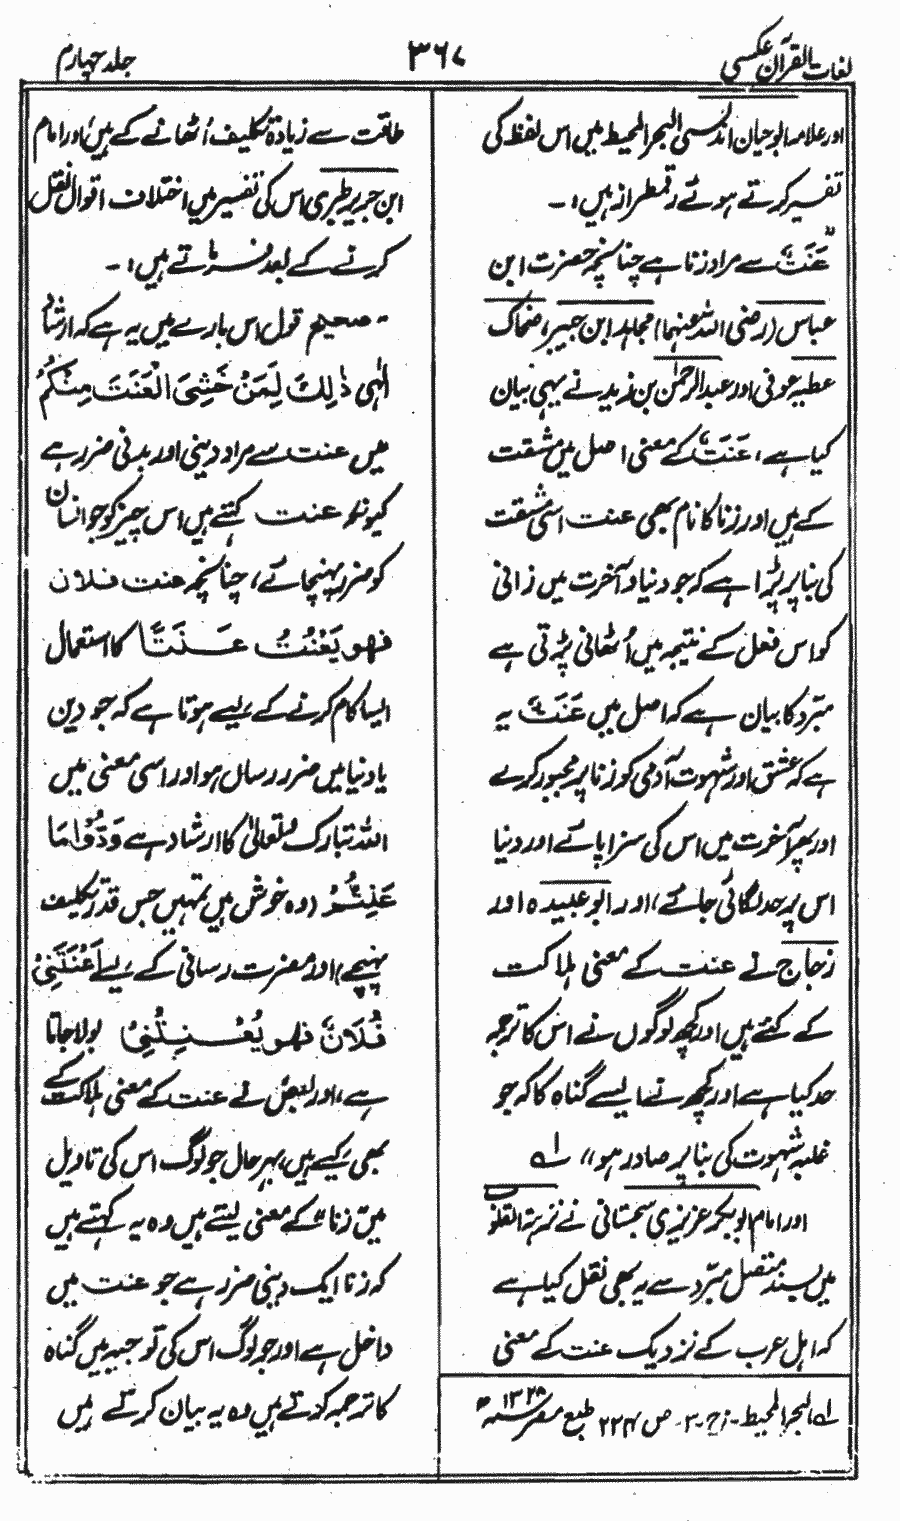 لغات القرآن عکسی
۳۶۷
جلد چہارم
اور علامہ ابو حیان اندلسی البحر المحیط میں اس لفظ کی
تفسیر کرتے ہوئے رقمطراز ہیں :-
عَنَتٌ سے مراد زنا ہے چنانچہ حضرت ابن
عباس (رضی اللہ عنہما) مجاہد ابن جبیر، ضحاک
عطیہ عوفی اور عبدالرحمٰن بن زید نے یہی بیان
کیا ہے، عَنَتٌ کے معنی اصل میں مشقت
کے ہیں اور زنا کا نام بھی عنت اسی مشقت
کی بنا پر پڑا ہے کہ جو دنیا و آخرت میں زانی
کو اس فعل کے نتیجہ میں اُٹھانی پڑتی ہے
مبرّد کا بیان ہے کہ اصل میں عَنَتٌ یہ
ہے کہ عشق اور شہوت آدمی کو زنا پر مجبور کر دے
اور پھر آخرت میں اس کی سزا پائے اور دنیا
اس پر حد لگائی جائے، اور ابو عبیدہ اور
زجاج نے عنت کے معنی ہلاکت
کے کئے ہیں اور کچھ لوگوں نے اس کا ترجمہ
حد کیا ہے اور کچھ نے ایسے گناہ کا کہ جو
غلبہ شہوت کی بنا پر صادر ہو،، لہ
اور امام ابوبکر عزیزی سجستانی نے نزہۃ القلوب
میں بسند متصل مبرّد سے یہ بھی نقل کیا ہے
کہ اہل عرب کے نزدیک عنت کے معنی
لہ البحر المحیط - ج - ۳ - ص ۲۲۴ طبع مصر ۱۳۲۸ھ
طاقت سے زیادۃ تکلیف اُٹھانے کے ہیں، اور امام
ابن جریر طبری اس کی تفسیر میں اختلاف اقوال نقل
کرنے کے بعد فرماتے ہیں :-
- صحیح قول اس بارے میں یہ ہے کہ ارشاد
الٰہی ذٰلِكَ لِمَنْ خَشِیَ الْعَنَتَ مِنْكُمْ
میں عنت سے مراد دینی اور بدنی ضرر ہے
کیونکہ عنت کہتے ہیں اس چیز کو جو انسان
کو ضرر پہنچائے، چنانچہ عنت فلان
فهو یَعْنَتُ عَنَتًا کا استعمال
ایسا کام کرنے کے لیے ہوتا ہے کہ جو دین
یا دنیا میں ضرر رساں ہو اور اسی معنی میں
اللہ تبارک و تعالیٰ کا ارشاد ہے وَدُّوْا مَا
عَنِتُّمْ (وہ خوش ہیں تمہیں جس قدر تکلیف
پہنچے) اور مضرت رسانی کے لیے اَعْنَتَنِیْ
فُلَانٌ فهو یُعْنِتُنِیْ بولا جاتا
ہے، اور بعض نے عنت کے معنی ہلاکت کے
بھی لیے ہیں، بہرحال جو لوگ اس کی تاویل
میں زنا کے معنی لیتے ہیں وہ یہ کہتے ہیں
کہ زنا ایک دینی ضرر ہے جو عنت میں
داخل ہے اور جو لوگ اس کی توجیہ میں گناہ
کا ترجمہ کرتے ہیں وہ یہ بیان کرتے ہیں